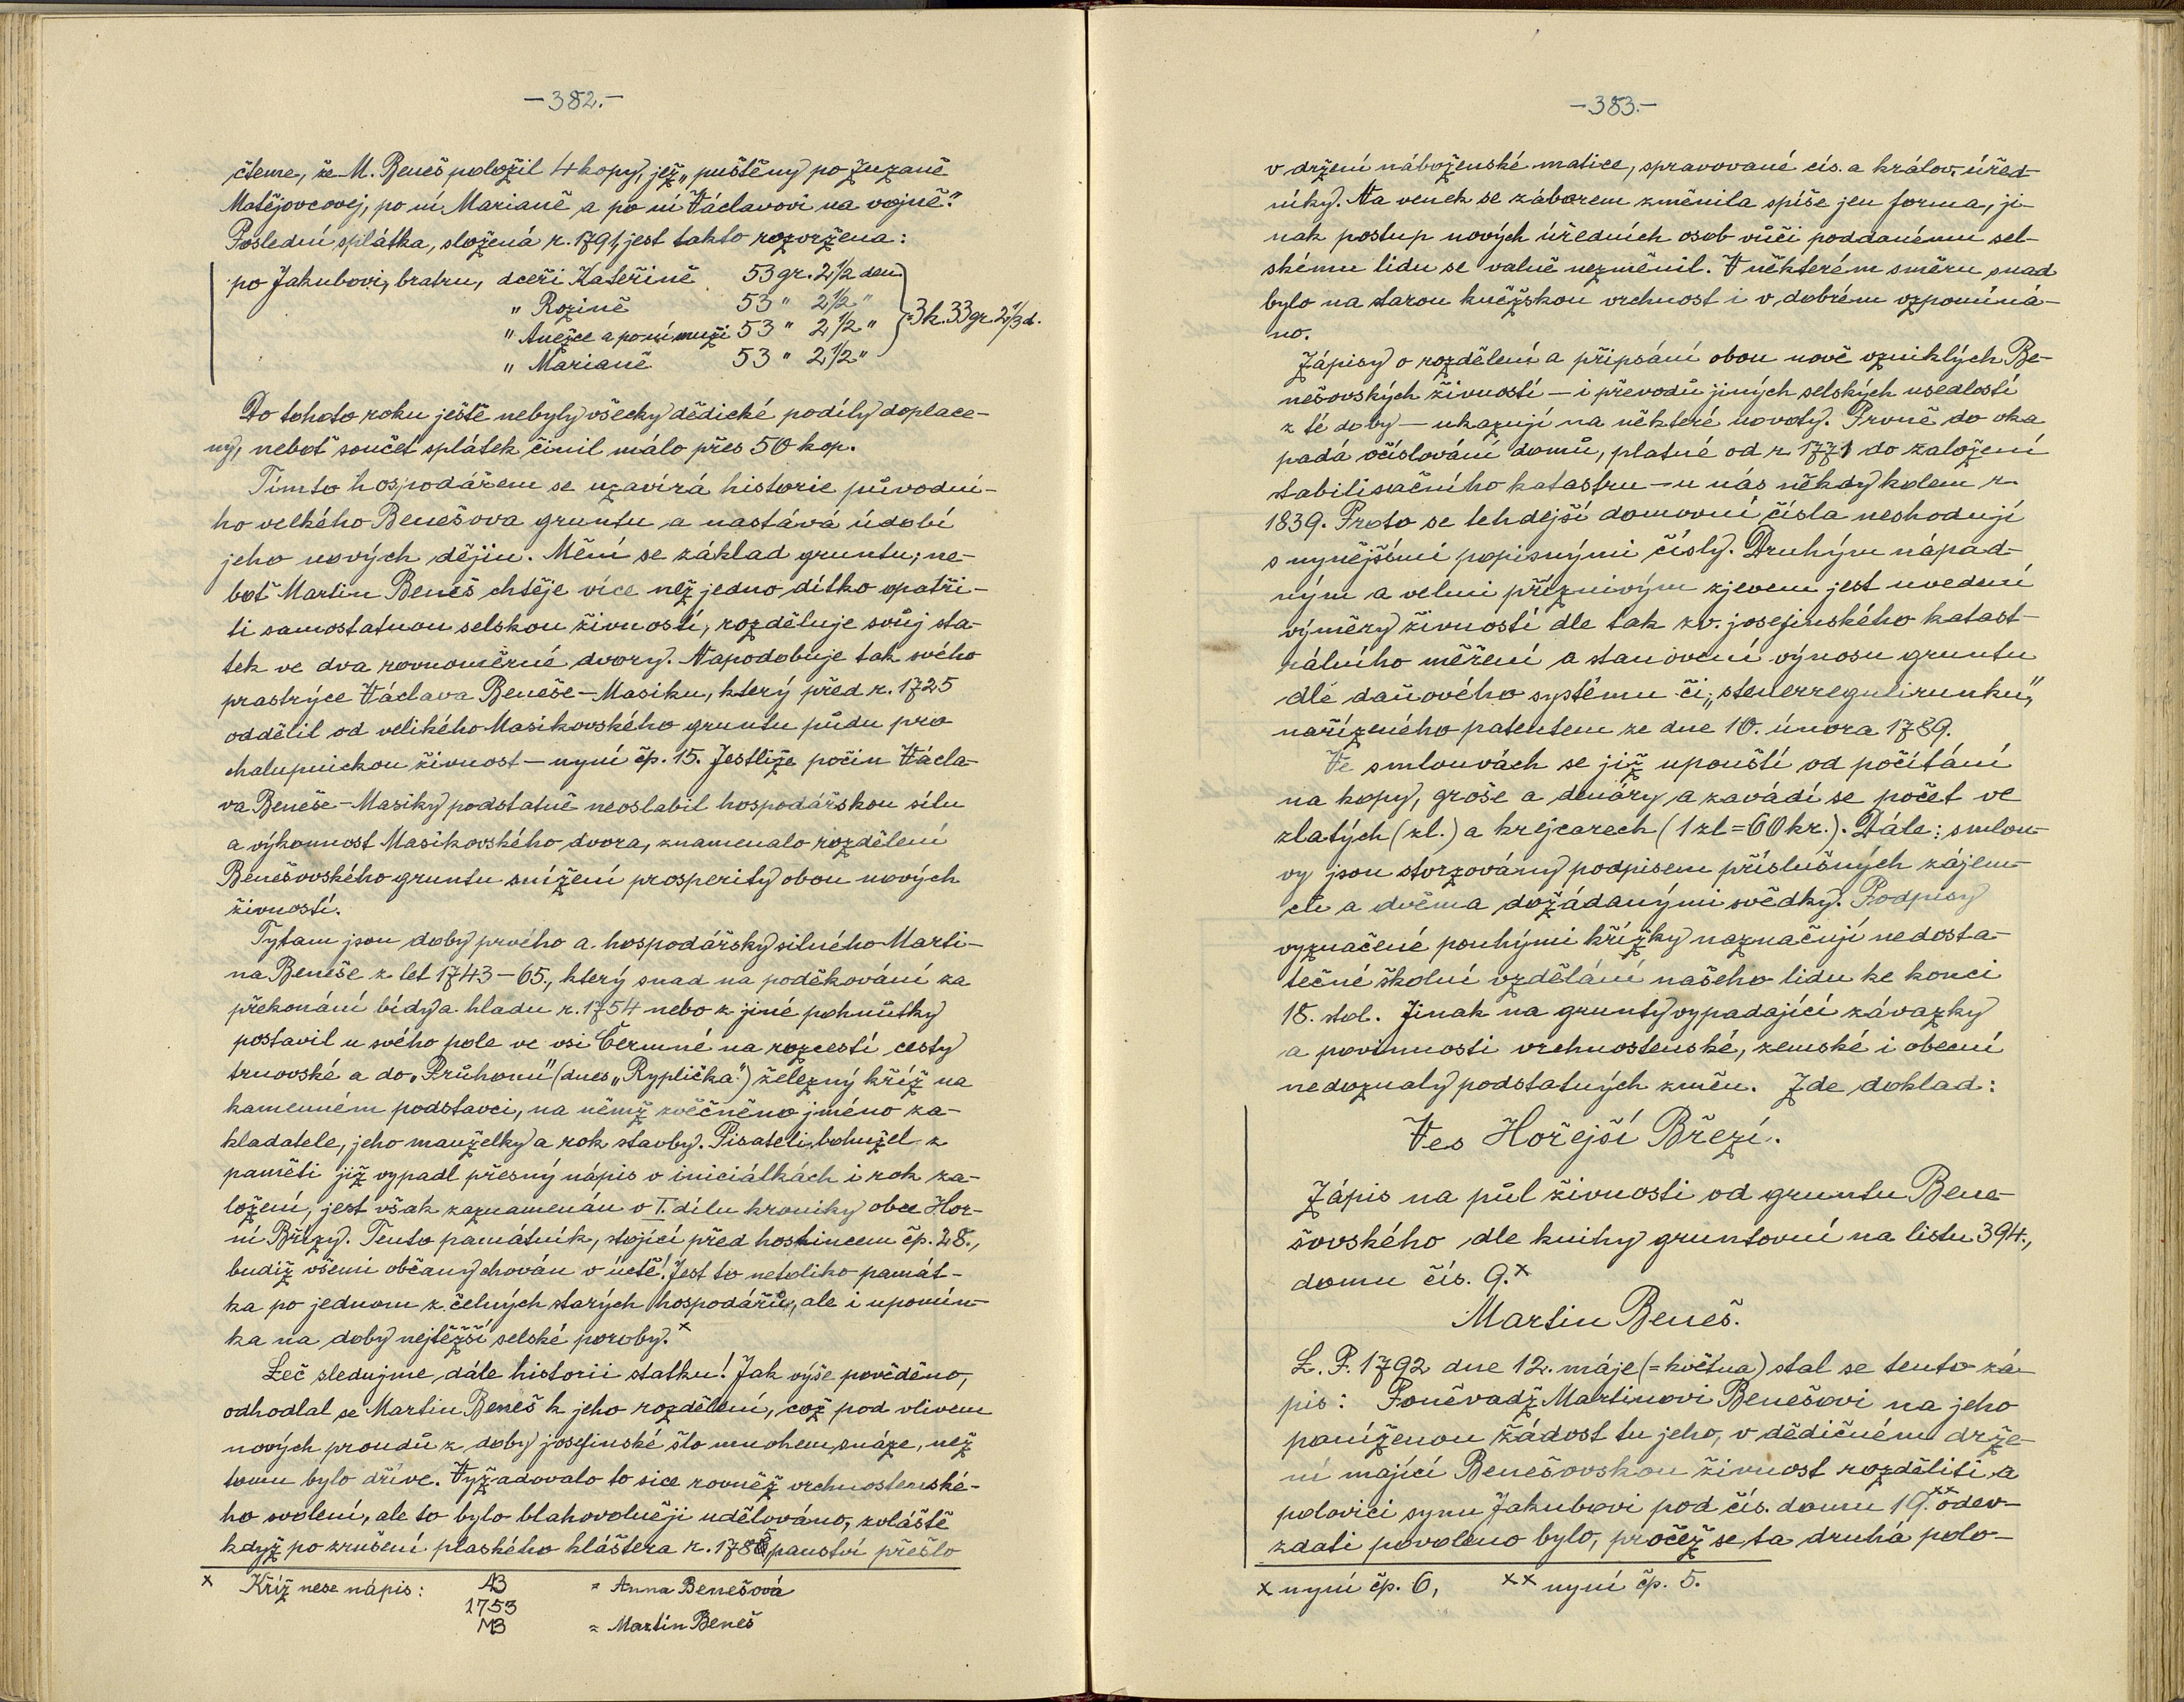 —382.—
čteme, že M. Beneš položil 4 kopy, jež „puštěny po Zuzaně
Matějovcovej, po ní Marianě a po ní Václavovi na vojně."
Poslední splátka, složená r. 1791, jest takto rozvržena:
po Jakubovi, bratru, dceři Kateřině 53 gr. 2 1/2 den
" Rozině 53 " 2 1/2 "
" Anežce a po ní muži 53 " 2 1/2 " = 3 k. 33 gr. 2 1/3 d.
" Marianě 53 " 2 1/2 "
Do tohoto roku ještě nebyly všecky dědické podíly doplace-
ny, neboť součet splátek činil málo přes 50 kop.
Tímto hospodářem se uzavírá historie původní-
ho velkého Benešova gruntu a nastává údobí
jeho nových dějin. Mění se základ gruntu; ne-
boť Martin Beneš chtěje více než jedno dítko opatři-
ti samostatnou selskou živností, rozděluje svůj sta-
tek ve dva rovnoměrné dvory. Napodobuje tak svého
prastrýce Václava Beneše-Masiku, který před r. 1725
oddělil od velikého Masíkovského gruntu půdu pro
chalupnickou živnost — nyní čp. 15. Jestliže počin Václa-
va Beneše-Masiky podstatně neoslabil hospodářskou sílu
a výkonnost Masikovského dvora, znamenalo rozdělení
Benešovského gruntu snížení prosperity obou nových
živností.
Tytam jsou doby prvého a hospodářsky silného Marti-
na Beneše z let 1743-65., který snad na poděkování za
překonání bídy a hladu r. 1754 nebo z jiné pohnůtky
postavil u svého pole ve vsi Čermné na rozcestí cesty
trnovské a do „Průhonu" (dnes „Ryplička") železný kříž na
kamenném podstavci, na němž zvěčněno jméno za-
kladatele, jeho manželky a rok stavby. Pisateli bohužel z
paměti již vypadl přesný nápis v iniciálkách i rok za-
ložení, jest však zaznamenán v I. dílu kroniky obce Hor-
ní Břízy. Tento památník, stojící před hostincem čp. 28.,
budiž všemi občany chován v úctě! Jest to netoliko památ-
ka po jednom z čelných starých hospodářů, ale i upomín-
ka na doby nejtěžší selské poroby.x
Leč sledujme dále historii statku! Jak výše pověděno,
odhodlal se Martin Beneš k jeho rozdělení, což pod vlivem
nových proudů z doby josefinské šlo mnohem snáze, než
tomu bylo dříve. Vyžadovalo to sice rovněž vrchnostenské-
ho svolení, ale to bylo blahovolněji udělováno, zvláště
když po zrušení plaského kláštera r. 1785 panství přešlo
x Kříž nese nápis: AB = Anna Benešová
1753
MB = Martin Beneš
—383.—
v držení náboženské matice, spravované cís. a králov. úřed-
níky. Na venek se záborem změnila spíše jen forma, ji-
nak postup nových úředních osob vůči poddanému sel-
skému lidu se valně nezměnil. V některém směru snad
bylo na starou kněžskou vrchnost i v dobrém vzpomíná-
no.
Zápisy o rozdělení a připsání obou nově vzniklých Be-
nešovských živností — i převodů jiných selských usedlostí
z té doby — ukazují na některé novoty. Prvně do oka
padá očíslování domů, platné od r. 1771 do založení
stabilisačního katastru — u nás někdy kolem r.
1839. Proto se tehdejší domovní čísla neshodují
s nynějšími popisnými čísly. Druhým nápad-
ným a velmi příznivým zjevem jest uvedení
výměry živností dle tak zv. josefinského katast-
rálního měření a stanovení výnosu gruntu
dle daňového systému či „steuerregulirunku",
nařízeného patentem ze dne 10. února 1789.
Ve smlouvách se již upouští od počítání
na kopy, groše a denáry a zavádí se počet ve
zlatých (zl.) a krejcarech (1 zl = 60 kr.). Dále: smlou-
vy jsou stvrzovány podpisem příslušných zájem-
ců a dvěma dožádanými svědky. Podpisy
vyznačené pouhými křížky naznačují nedosta-
tečné školní vzdělání našeho lidu ke konci
18. stol. Jinak na grunty vypadající závazky
a povinnosti vrchnostenské, zemské i obecní
nedoznaly podstatných změn. Zde doklad:
Ves Hořejší Březí.
Zápis na půl živnosti od gruntu Bene-
šovského dle knihy gruntovní na listu 394.,
domu čís. 9.x
Martin Beneš.
L. P. 1792 dne 12. máje (= května) stal se tento zá-
pis: Poněvadž Martinovi Benešovi na jeho
poníženou žádost tu jeho, v dědičném drže-
ní mající Benešovskou živnost rozděliti a
polovici synu Jakubovi pod čís. domu 19.xx odev-
zdati povoleno bylo, pročež se ta druhá polo-
x nyní čp. 6, xx nyní čp. 5.